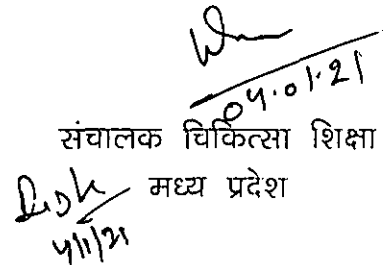 04.01.21
संचालक चिकित्सा शिक्षा
मध्य प्रदेश
4/1/21